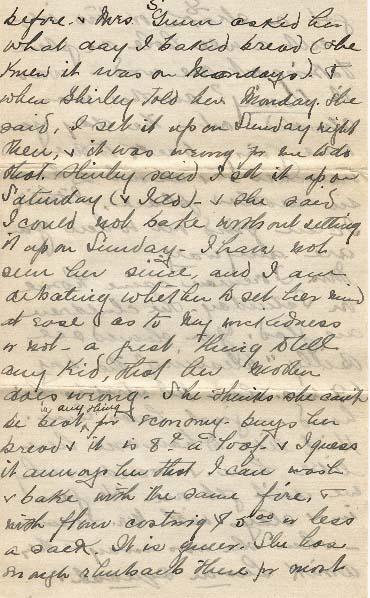 before. & Mrs. Gunn asked her
what day I baked bread (she
knew it was on Monday's) &
when Shirley told her Monday. She
said, I set it up on Sunday night
then, & it was wrong for me to do
that. Shirley said I set it up on
Saturday (& I do) - & she said
I could not bake without setting
it up on Sunday - I have not
seen her since, and I am
debating whether to set her mind
at ease as to my wickedness
or not - a great thing to tell
any kid, that her "mother
does wrong. She thinks she can't
be beat in anything for economy - buys her
bread & it is 8¢ a loaf. & I guess
it annoys her that I can wash
& bake with the same fire, &
with flour costing or less
a sack. It is queer. She has
enough rhubarb there for most